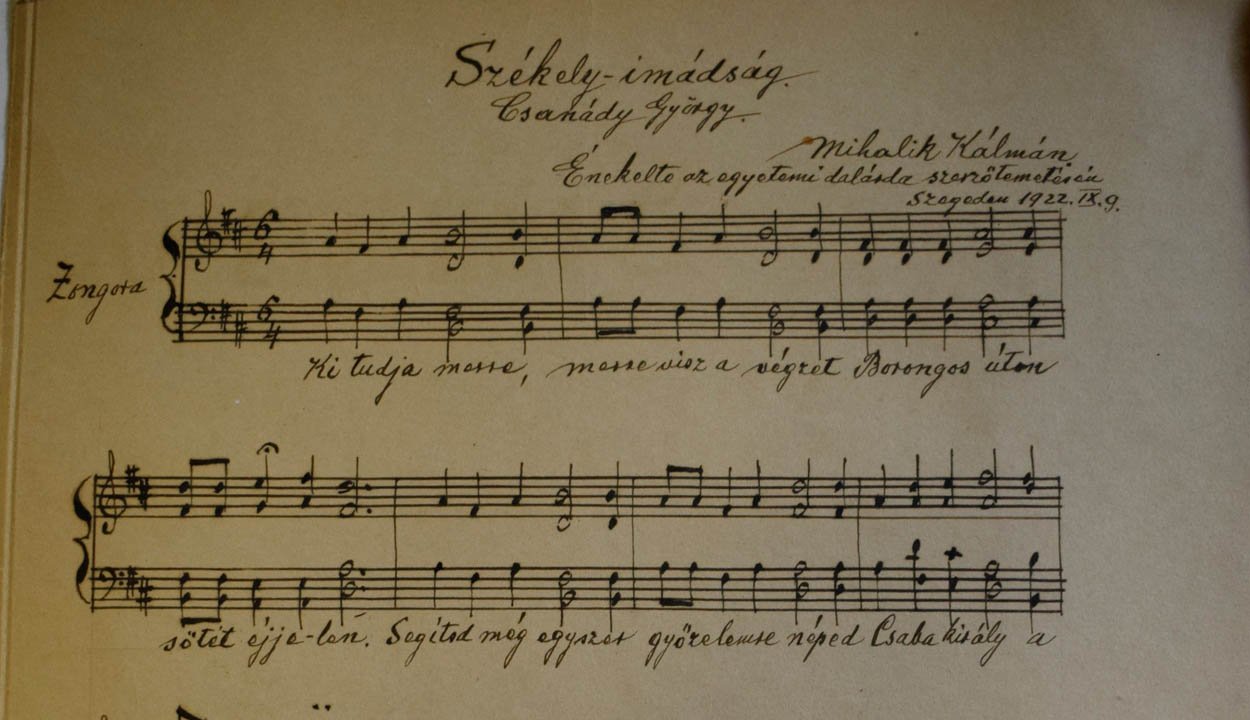 Székely-imádság.
Csanády György.
Mihalik Kálmán
Énekelte az egyetemi dalárda szerzőtemetésén
Szegeden 1922. IX. 9.
Zongora
6 4
6 4
Ki tudja merre, merre visz a végzet Borongos úton
sötét éjje-len. Segítsd még egyszer győzelemre néped Csaba király a